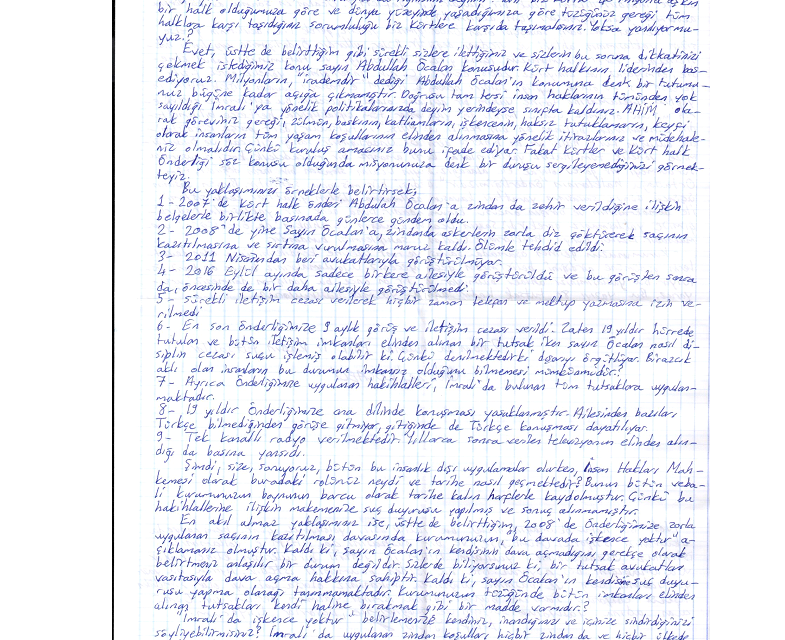 bir halk olduğumuza göre ve dünya yüzeyinde yaşadığımıza göre tüzüğünüz gereği tüm
halklara karşı taşıdığınız sorumluluğu biz Kürtlere karşıda taşımalısınız. Yoksa yanılıyormu-
yuz.?
Evet, üstte de belirttiğim gibi sürekli sizlere ilettiğimiz ve sizlerin bu soruna dikkatinizi
çekmek istediğimiz konu sayın Abdullah Öcalan konusudur. Kürt halkının liderinden bah-
ediyoruz. Milyonların, "irademdir" dediği Abdullah Öcalan'ın konumuna denk bir tutumu-
nuz bugüne kadar açığa çıkmamıştır. Doğrusu tam tersi insan haklarının tümünden yok
sayıldığı İmralı'ya yönelik politikalarınızda deyim yerindeyse sınıfta kaldınız. AHİM ola-
rak göreviniz gereği, zülmün, baskının, katliamların, işkencenin, haksız tutuklamaların, keyfi
olarak insanların tüm yaşam koşullarının elinden alınmasına yönelik itirazlarınız ve müdehale-
niz olmalıdır. Çünkü kuruluş amacınız bunu ifade ediyor. Fakat Kürtler ve Kürt halk
Önderliği söz konusu olduğunda misyonunuza denk bir duruşu sergileyemediğinizi görmek-
teyiz.
Bu yaklaşımınızı örneklerle belirtirsek;
1- 2007'de Kürt halk önderi Abdullah Öcalan'a zindan da zehir verildiğine ilişkin
belgelerle birlikte basınada günlerce gündem oldu.
2- 2008'de yine Sayın Öcalan'a, zindanda askerlerin zorla diz çöktürerek saçının
kazıtılmasına ve sırtına vurulmasına maruz kaldı. Ölümle tehdid edildi.
3- 2011 Nisanından beri avukatlarıyla görüştürülmüyor.
4- 2016 Eylül ayında sadece birkere ailesiyle görüştürüldü ve bu görüşten sonra
da, öncesinde de bir daha ailesiyle görüştürülmedi.
5- sürekli iletişim cezası verilerek hiçbir zaman telefon ve mektup yazmasına izin ve-
rilmedi
6- En son önderliğimize 3 aylık görüş ve iletişim cezası verildi. Zaten 19 yıldır hücrede
tutulan ve bütün iletişim imkanları elinden alınan bir tutsak iken sayın Öcalan nasıl di-
siplin cezası suçu işlemiş olabilir ki. Çünkü denilmektedirki dışarıyı örgütlüyor. Birazcık
aklı olan insanların bu durumun imkansız olduğunu bilmemesi mümkünmüdür.?
7- Ayrıca Önderliğimize uygulanan hakihlalleri, İmralı'da bulunan tüm tutsaklara uygulan-
maktadır.
8- 19 yıldır Önderliğimize ana dilinde konuşması yasaklanmıştır. Ailesinden bazıları
Türkçe bilmediğinden görüşe gitmiyor, gittiğinde de Türkçe konuşması dayatılıyor.
9- Tek kanallı radyo verilmektedir. Yıllarca sonra verilen televizyonun elinden alın-
dığı da basına yansıdı.
Şimdi, size, soruyoruz, bütün bu insanlık dışı uygulamalar olurken, İnsan Hakları Mah-
kemesi olarak buradaki rolünüz neydi ve tarihe nasıl geçmektedir? Bunun bütün veba-
li kurumunuzun boynunun borcu olarak tarihe kalın harflerle kaydolmuştur. Çünkü bu
hakihlallerine ilişkin makemenize suç duyurusu yapılmış ve sonuç alınmamıştır.
En akıl almaz yaklaşımınız ise, üstte de belirttiğim, 2008'de Önderliğimize zorla
uygulanan saçının kazıtılması davasında kurumunuzun, "bu davada işkence yoktur" a-
çıklamanız olmuştur. Kaldı ki, sayın Öcalan'ın kendisinin dava açmadığını, gerekçe olarak
belirtmeniz anlaşılır bir durum değildir. Sizlerde biliyorsunuz ki, bir tutsak avukatları
vasıtasıyla dava açma hakkına sahiptir. Kaldı ki, sayın Öcalan'ın kendisine suç duyu-
rusu yapma olanağı tanınmamaktadır. Kurumunuzun tüzüğünde bütün imkanları elinden
alınan tutsakları kendi haline bırakmak gibi bir madde varmıdır?
"İmralı'da işkence yoktur" belirlemenize kendiniz, inandığınızı ve içinize sindirdiğinizi
söyliyebilirmisiniz? İmralı'da uygulanan zindan koşulları hiçbir zindanda ve hiçbir ülkede